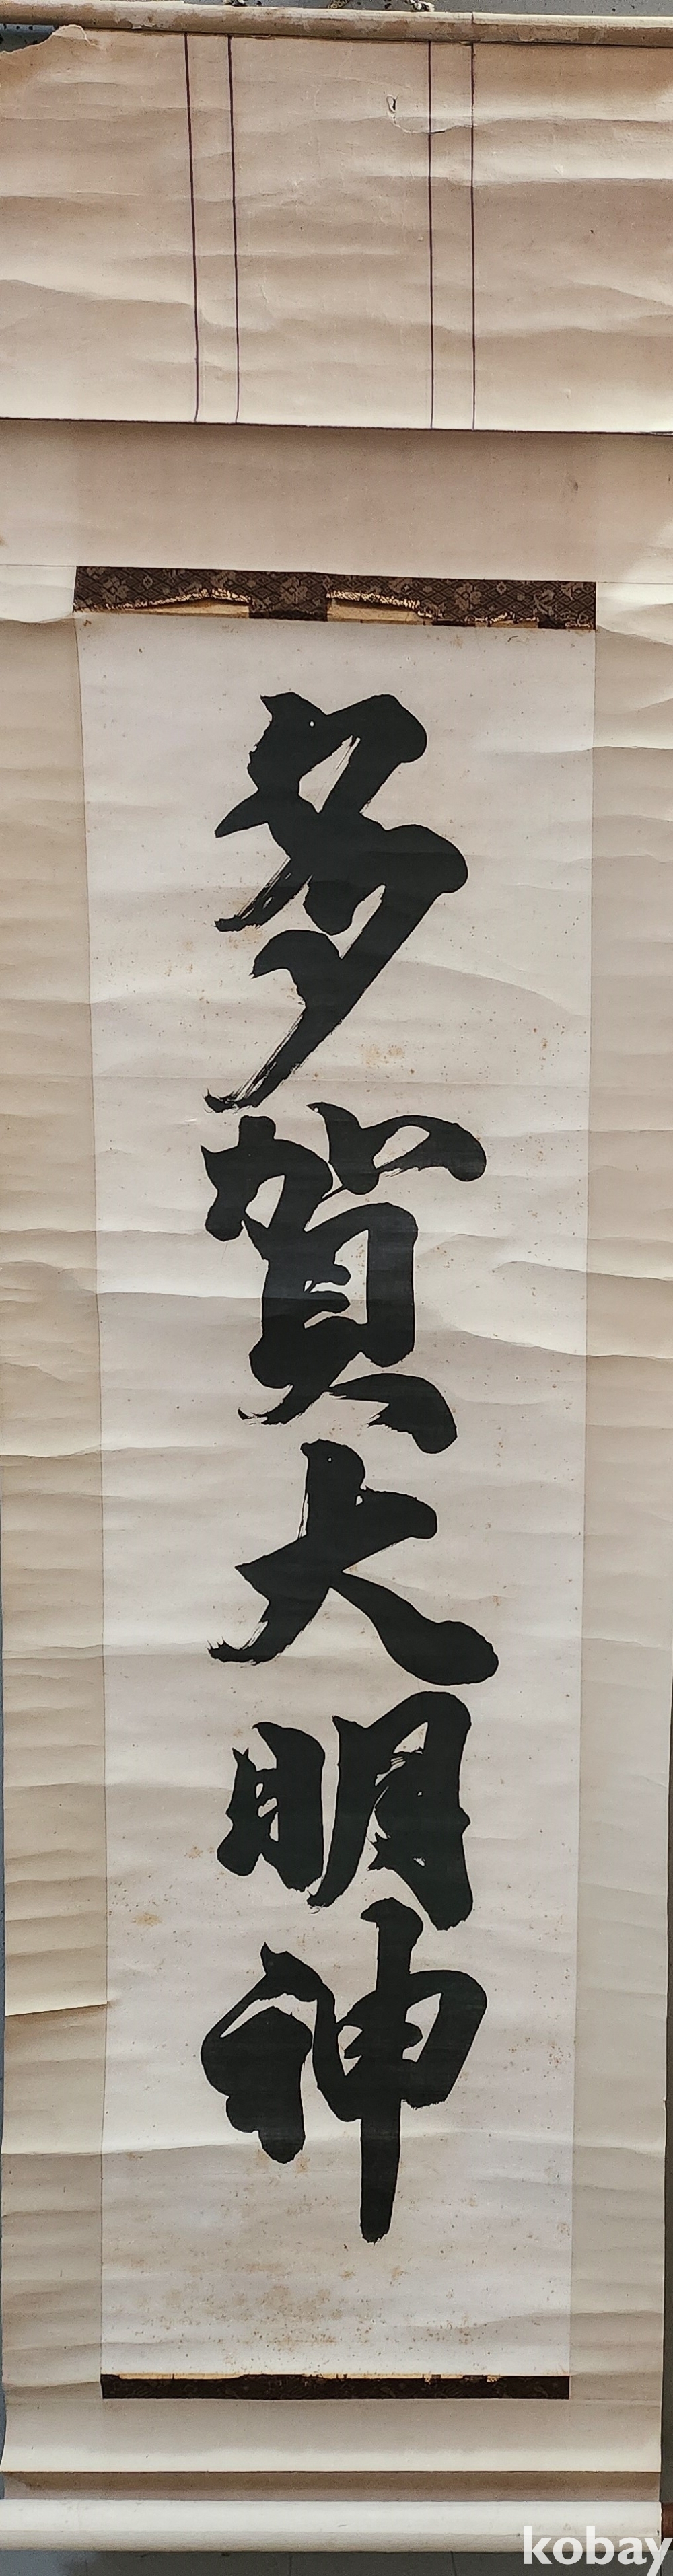 多賀大明神
kobay